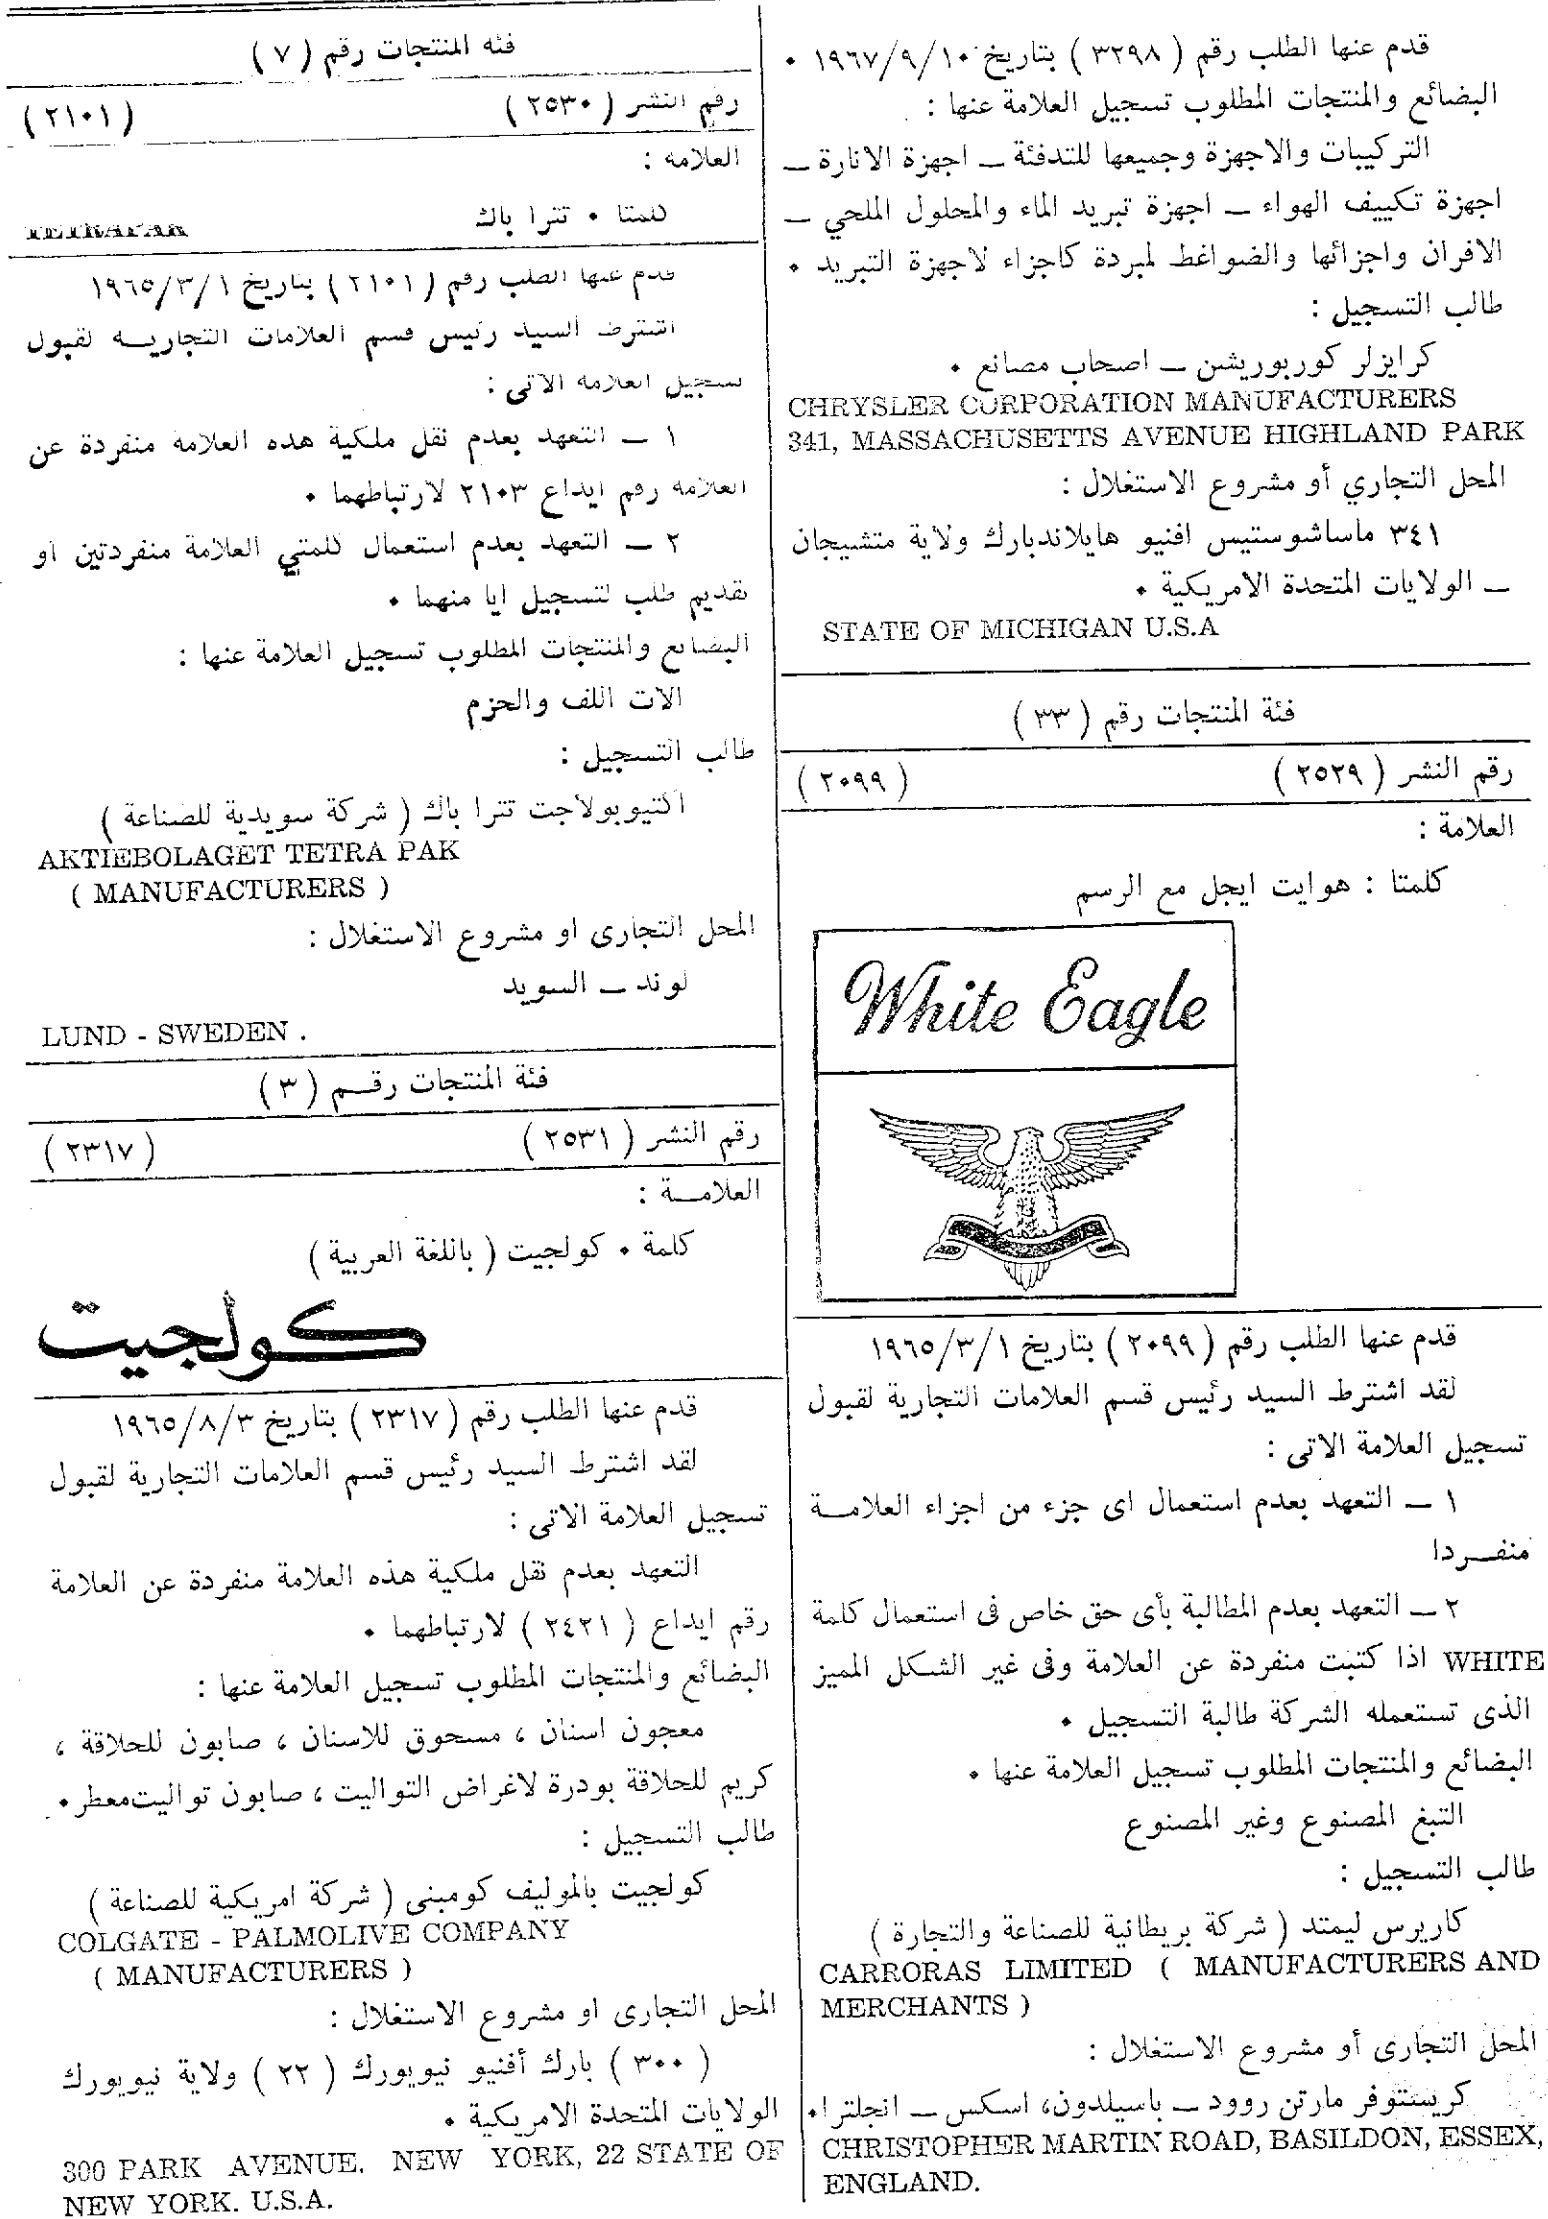 قدم عنها الطلب رقم ( ٣٢٩٨ ) بتاريخ ١٩٦٧/٩/١٠ ٠
البضائع والمنتجات المطلوب تسجيل العلامة عنها :
التركيبات والاجهزة وجميعها للتدفئة ــ اجهزة الانارة ــ
اجهزة تكييف الهواء ــ اجهزة تبريد الماء والمحلول الملحي ــ
الافران واجزائها والضواغط لمبردة كاجزاء لاجهزة التبريد ٠
طالب التسجيل :
كرايزلر كوربوريشن ــ اصحاب مصانع ٠
CHRYSLER CORPORATION MANUFACTURERS
341, MASSACHUSETTS AVENUE HIGHLAND PARK
المحل التجاري أو مشروع الاستغلال :
٣٤١ ماساشوستيس افنيو هايلاندبارك ولاية متشيجان
ــ الولايات المتحدة الامريكية ٠
STATE OF MICHIGAN U.S.A
فئة المنتجات رقم ( ٣٣ )
رقم النشر ( ٢٥٢٩ ) ( ٢٠٩٩ )
العلامة :
كلمتا : هوايت ايجل مع الرسم
White Eagle
قدم عنها الطلب رقم ( ٢٠٩٩ ) بتاريخ ١٩٦٥/٣/١
لقد اشترط السيد رئيس قسم العلامات التجارية لقبول
تسجيل العلامة الاتى :
١ ــ التعهد بعدم استعمال اى جزء من اجزاء العلامــة
منفــردا
٢ ــ التعهد بعدم المطالبة بأى حق خاص فى استعمال كلمة
WHITE اذا كتبت منفردة عن العلامة وفى غير الشكل المميز
الذى تستعمله الشركة طالبة التسجيل ٠
البضائع والمنتجات المطلوب تسجيل العلامة عنها ٠
التبغ المصنوع وغير المصنوع
طالب التسجيل :
كاريرس ليمتد ( شركة بريطانية للصناعة والتجارة )
CARRORAS LIMITED ( MANUFACTURERS AND
MERCHANTS )
المحل التجارى أو مشروع الاستغلال :
كريستوفر مارتن روود ــ باسيلدون، اسكس ــ انجلترا٠
CHRISTOPHER MARTIN ROAD, BASILDON, ESSEX,
ENGLAND.
فئه المنتجات رقم ( ٧ )
رقم النشر ( ٢٥٣٠ ) ( ٢١٠١ )
العلامه :
كلمتا ٠ تترا باك TETRAPAK
قدم عنها الطلب رقم ( ٢١٠١ ) بتاريخ ١٩٦٥/٣/١
اشترط السيد رئيس قسم العلامات التجاريــه لقبول
تسجيل العلامه الاتى :
١ ــ التعهد بعدم نقل ملكية هذه العلامة منفردة عن
العلامه رقم ايداع ٢١٠٣ لارتباطهما ٠
٢ ــ التعهد بعدم استعمال كلمتي العلامة منفردتين او
تقديم طلب لتسجيل ايا منهما ٠
البضائع والمنتجات المطلوب تسجيل العلامة عنها :
الات اللف والحزم
طالب التسجيل :
اكتيوبولاجت تترا باك ( شركة سويدية للصناعة )
AKTIEBOLAGET TETRA PAK
( MANUFACTURERS )
المحل التجارى او مشروع الاستغلال :
لوند ــ السويد
LUND - SWEDEN .
فئة المنتجات رقــم ( ٣ )
رقم النشر ( ٢٥٣١ ) ( ٢٣١٧ )
العلامــة :
كلمة ٠ كولجيت ( باللغة العربية )
كولجيت
قدم عنها الطلب رقم ( ٢٣١٧ ) بتاريخ ١٩٦٥/٨/٣
لقد اشترط السيد رئيس قسم العلامات التجارية لقبول
تسجيل العلامة الاتى :
التعهد بعدم نقل ملكية هذه العلامة منفردة عن العلامة
رقم ايداع ( ٢٤٢١ ) لارتباطهما ٠
البضائع والمنتجات المطلوب تسجيل العلامة عنها :
معجون اسنان ، مسحوق للاسنان ، صابون للحلاقة ،
كريم للحلاقة بودرة لاغراض التواليت ، صابون تواليت‌معطر٠
طالب التسجيل :
كولجيت بالموليف كومبنى ( شركة امريكية للصناعة )
COLGATE - PALMOLIVE COMPANY
( MANUFACTURERS )
المحل التجارى او مشروع الاستغلال :
( ٣٠٠ ) بارك أفنيو نيويورك ( ٢٢ ) ولاية نيويورك
الولايات المتحدة الامريكية ٠
300 PARK AVENUE. NEW YORK, 22 STATE OF
NEW YORK. U.S.A.